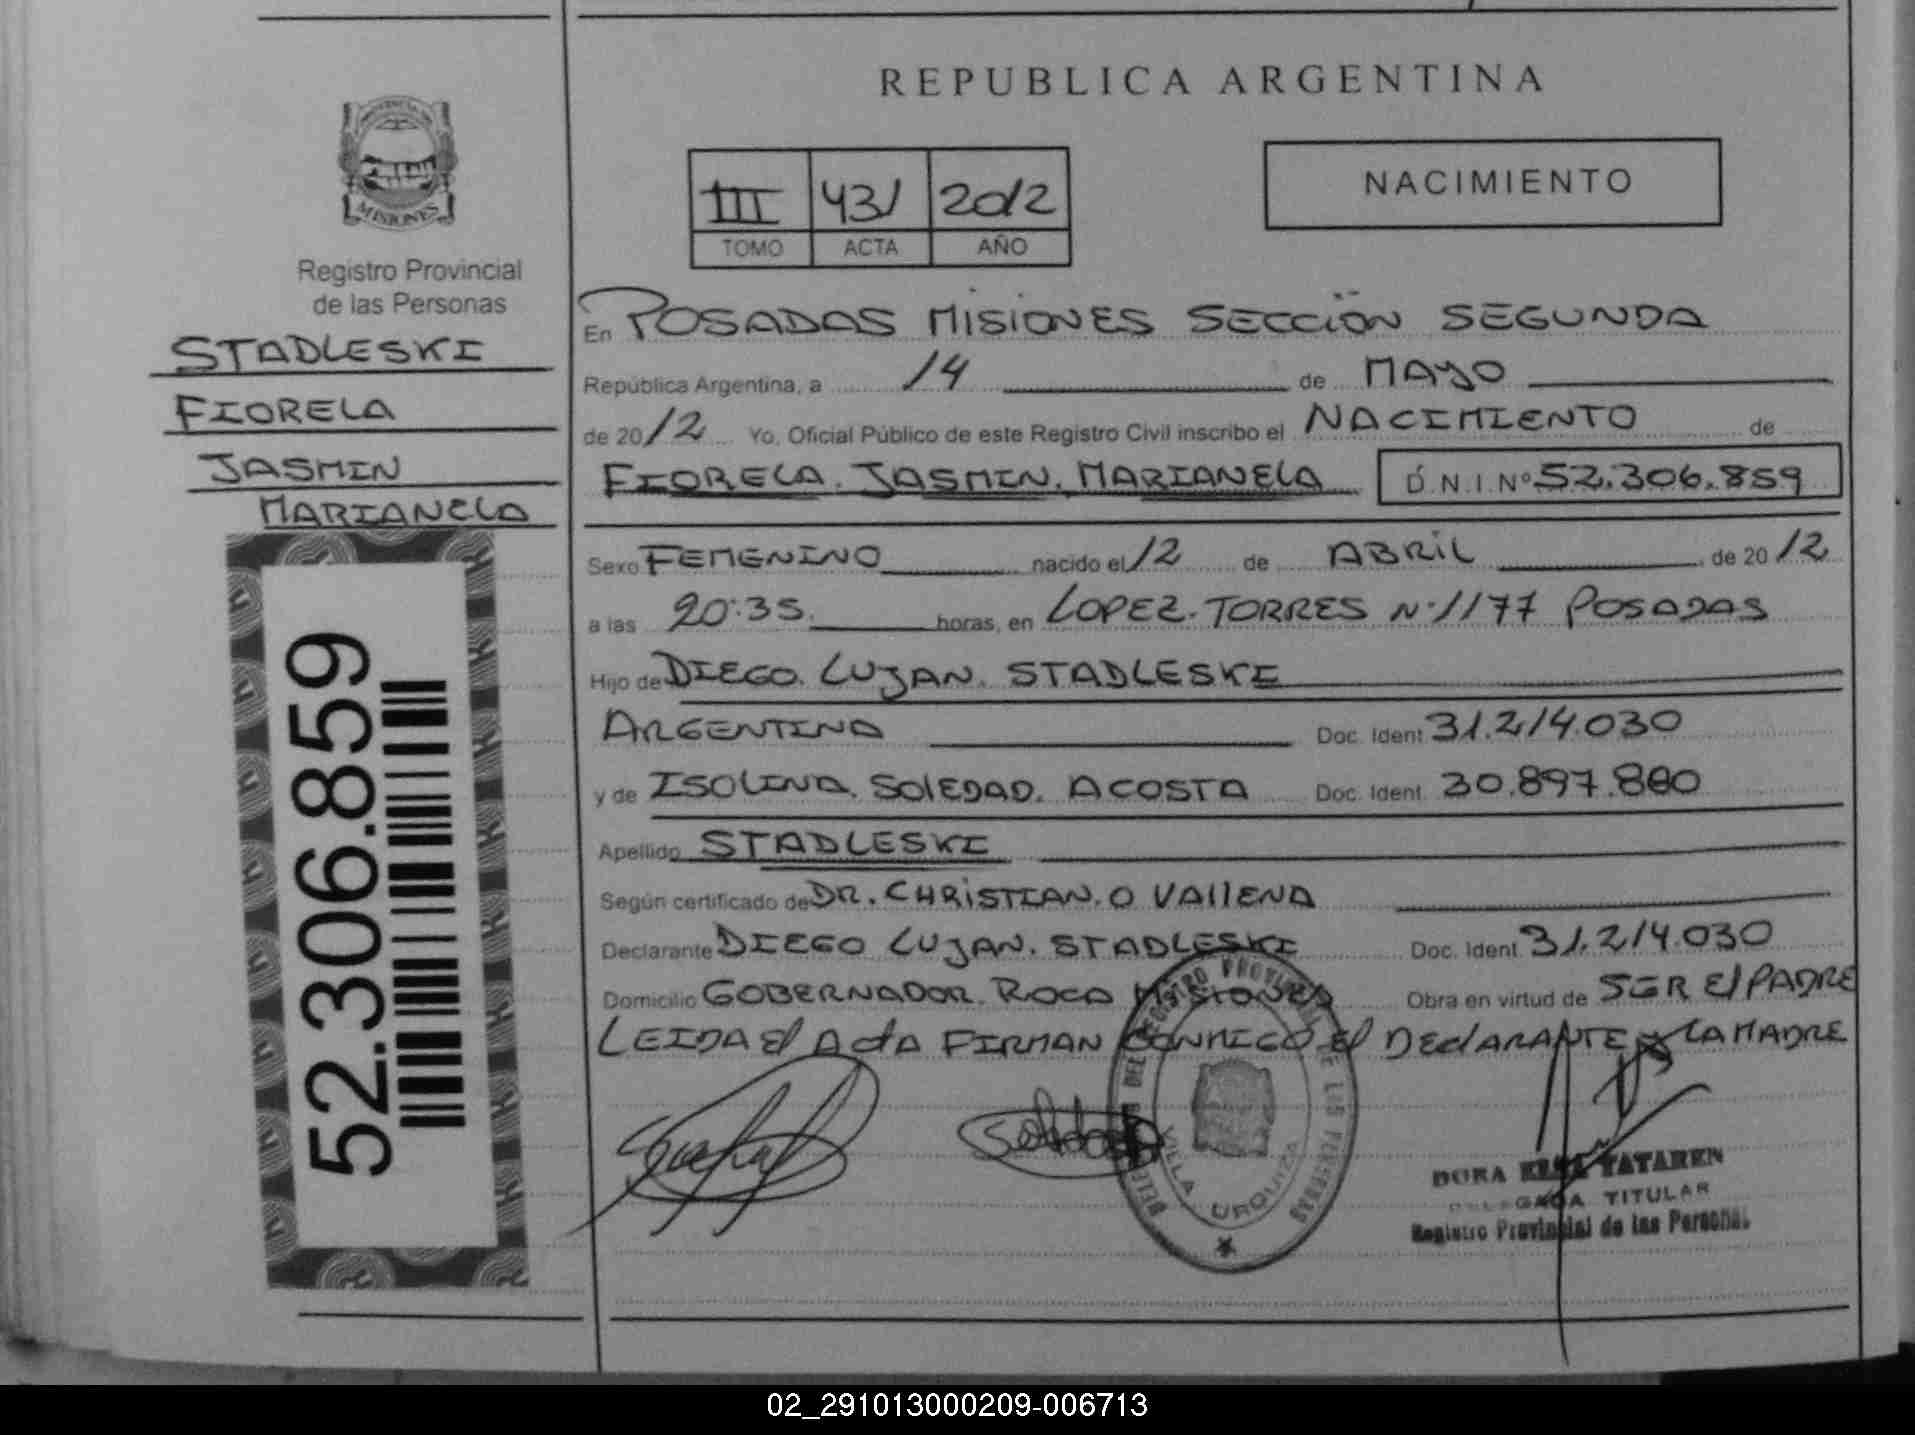 REPUBLICA ARGENTINA
NACIMIENTO
III 431 2012
TOMO ACTA AÑO
MISIONES
Registro Provincial
de las Personas
STADLESKI
FIORELA
JASMIN
MARIANELA
52.306.859
En POSADAS MISIONES SECCION SEGUNDA
República Argentina, a 14 de MAYO
de 2012 Yo, Oficial Público de este Registro Civil inscribo el NACIMIENTO de
FIORELA. JASMIN. MARIANELA D.N.I.Nº 52.306.859
Sexo FEMENINO nacido el 12 de ABRIL de 2012
a las 20:35. horas, en LOPEZ. TORRES Nº 1177 POSADAS
Hijo de DIEGO. LUJAN. STADLESKI
ARGENTINA Doc. Ident 31.214.030
y de ISOLINA. SOLEDAD. ACOSTA Doc. Ident. 30.897.880
Apellido STADLESKI
Según certificado de DR. CHRISTIAN. O VALLENA
Declarante DIEGO LUJAN. STADLESKI Doc. Ident. 31.214.030
Domicilio GOBERNADOR. ROCA MISIONES Obra en virtud de SER El PADRE
LEIDA El ActA FIRMAN CONMIGO El DEClARANTE y LA MADRE
Soledad
DEL REGISTRO PROVINCIAL DE LAS PERSONAS
VILLA URQUIZA
DORA ELSA TATAREN
DELEGADA TITULAR
Registro Provincial de las Personas
02_291013000209-006713